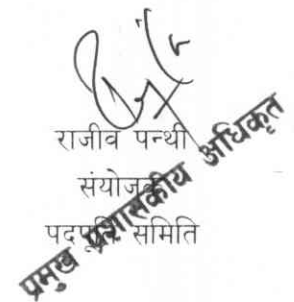 राजीव पन्थी
संयोजक
पदपूर्ति समिति
प्रमुख प्रशासकीय अधिकृत